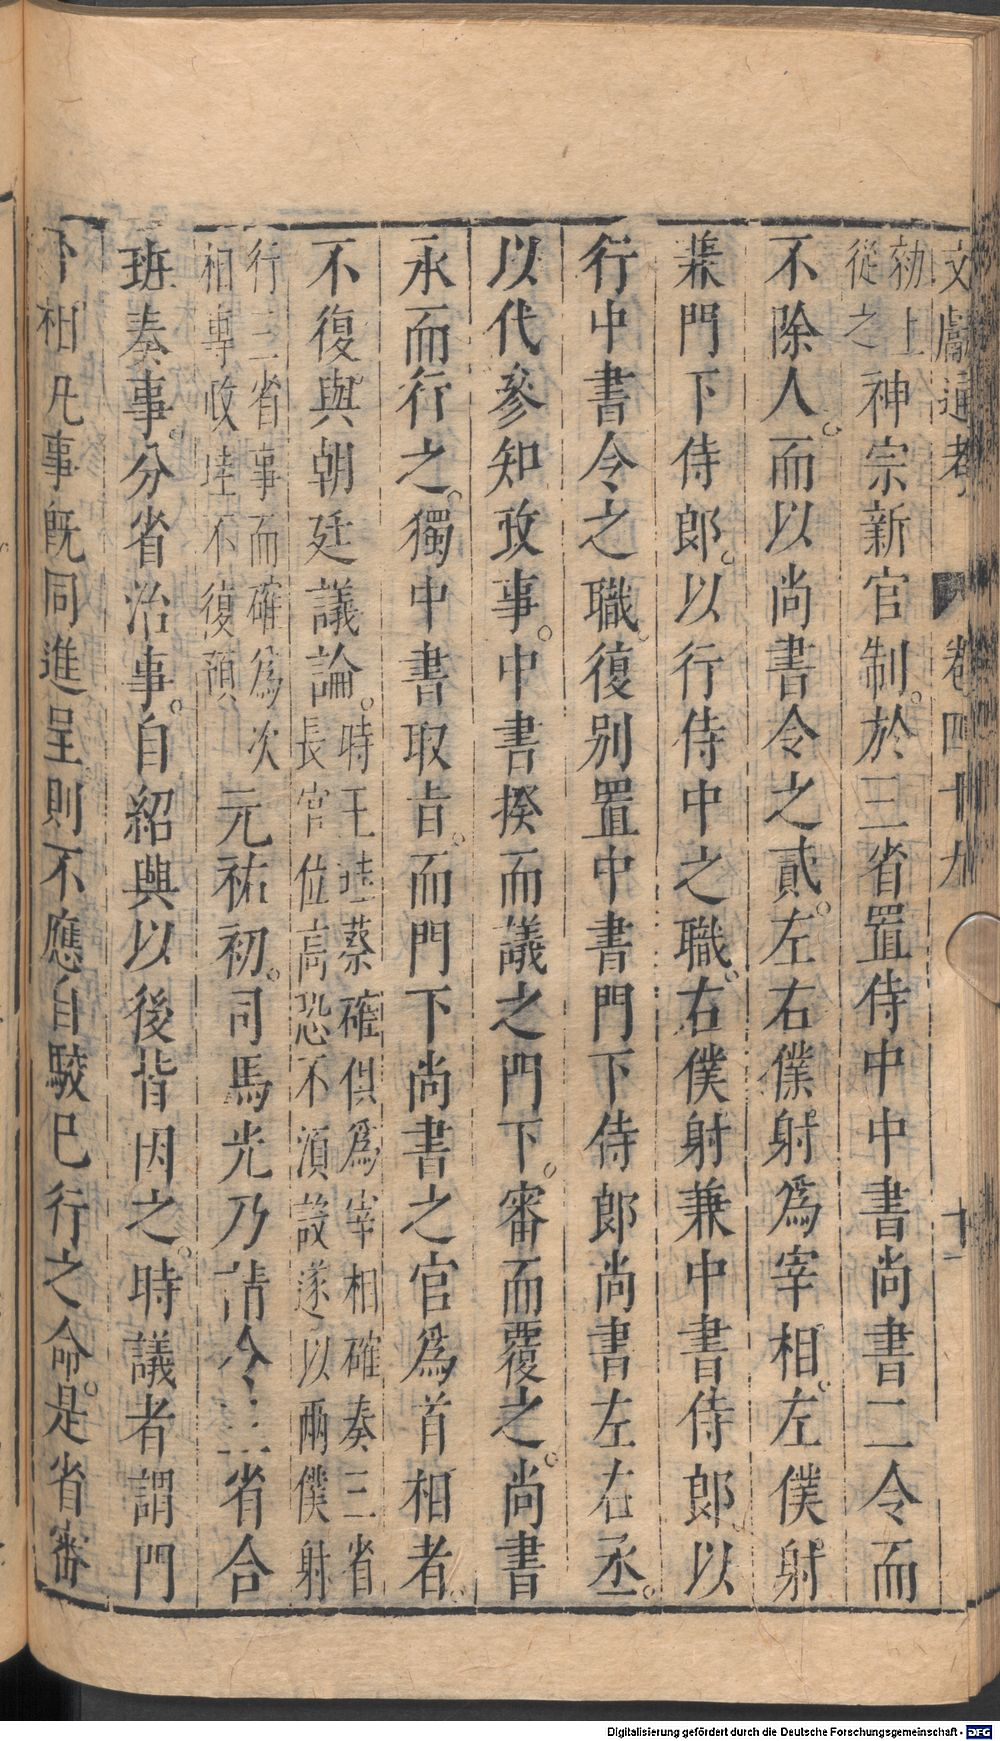 文獻通考 卷四十九 十一
劾上從之神宗新官制。於三省置侍中中書尚書二令而
不除人。而以尚書令之貳。左右僕射爲宰相。左僕射
兼門下侍郎。以行侍中之職。右僕射兼中書侍郎以
行中書令之職。復别置中書門下侍郎尚書左右丞。
以代參知政事。中書揆而議之門下。審而覆之。尚書
承而行之。獨中書取㫖。而門下尚書之官爲首相者。
不復與朝廷議論。時王珪蔡確俱爲宰相確奏三省長官位高恐不須設遂以兩僕射
行三省事而確爲次相專政珪不復預元祐初。司馬光乃請令三省合
班奏事。分省治事。自紹興以後皆因之。時議者謂門
下相凡事既同進呈則不應自駮已行之命。是省審
Digitalisierung gefördert durch die Deutsche Forschungsgemeinschaft - DFG